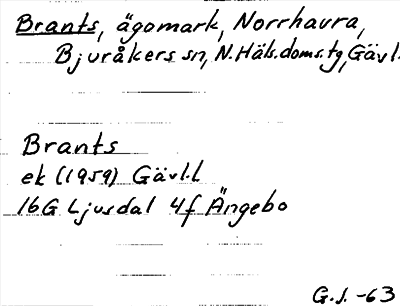 Brants, ägomark, Norrhavra,
Bjuråkers sn, N.Häls.doms.tg, Gävl.
Brants
ek (1959) Gävl.l
16G Ljusdal 4f Ängebo
G.J. -63